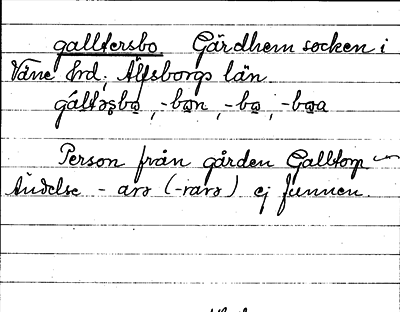 galltersbo Gärdhem socken i
Väne hrd. Älfsborgs län.
gáltəsbo, -bon, -bo, -boa
Person från gården Galltorp
Ändelse - arə (-rarə) ej funnen.